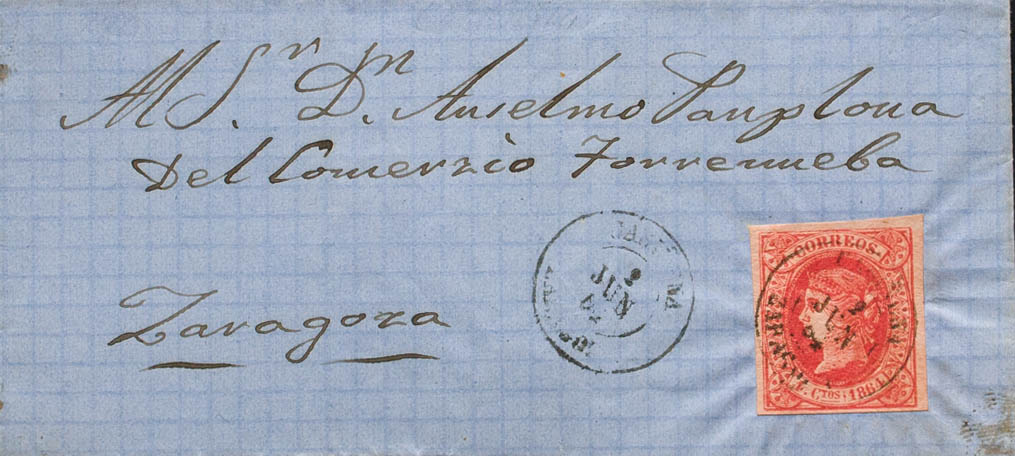 Al S.r D.n Anselmo Panplona
Del Comerzio Torrenueba
Zaragoza
2
JUN
64
CORREOS
2
JUN
64
4 CTOS 1864